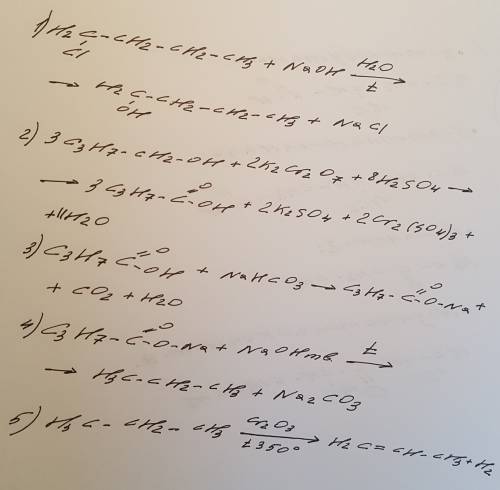 1) H2C-CH2-CH2-CH3 + NaOH H2O
Cl t
→ H2C-CH2-CH2-CH3 + NaCl
OH
2) 3C3H7-CH2-OH + 2K2Cr2O7 + 8H2SO4 →
→ 3C3H7-C=O-OH + 2K2SO4 + 2Cr2(SO4)3 +
+11H2O
3) C3H7C=O-OH + NaHCO3 → C3H7-C=O-O-Na +
+ CO2 + H2O
4) C3H7-C=O-O-Na + NaOHтв t →
→ H3C-CH2-CH3 + Na2CO3
5) H3C-CH2-CH3 Cr2O3 t350° → H2C=CH-CH3+H2